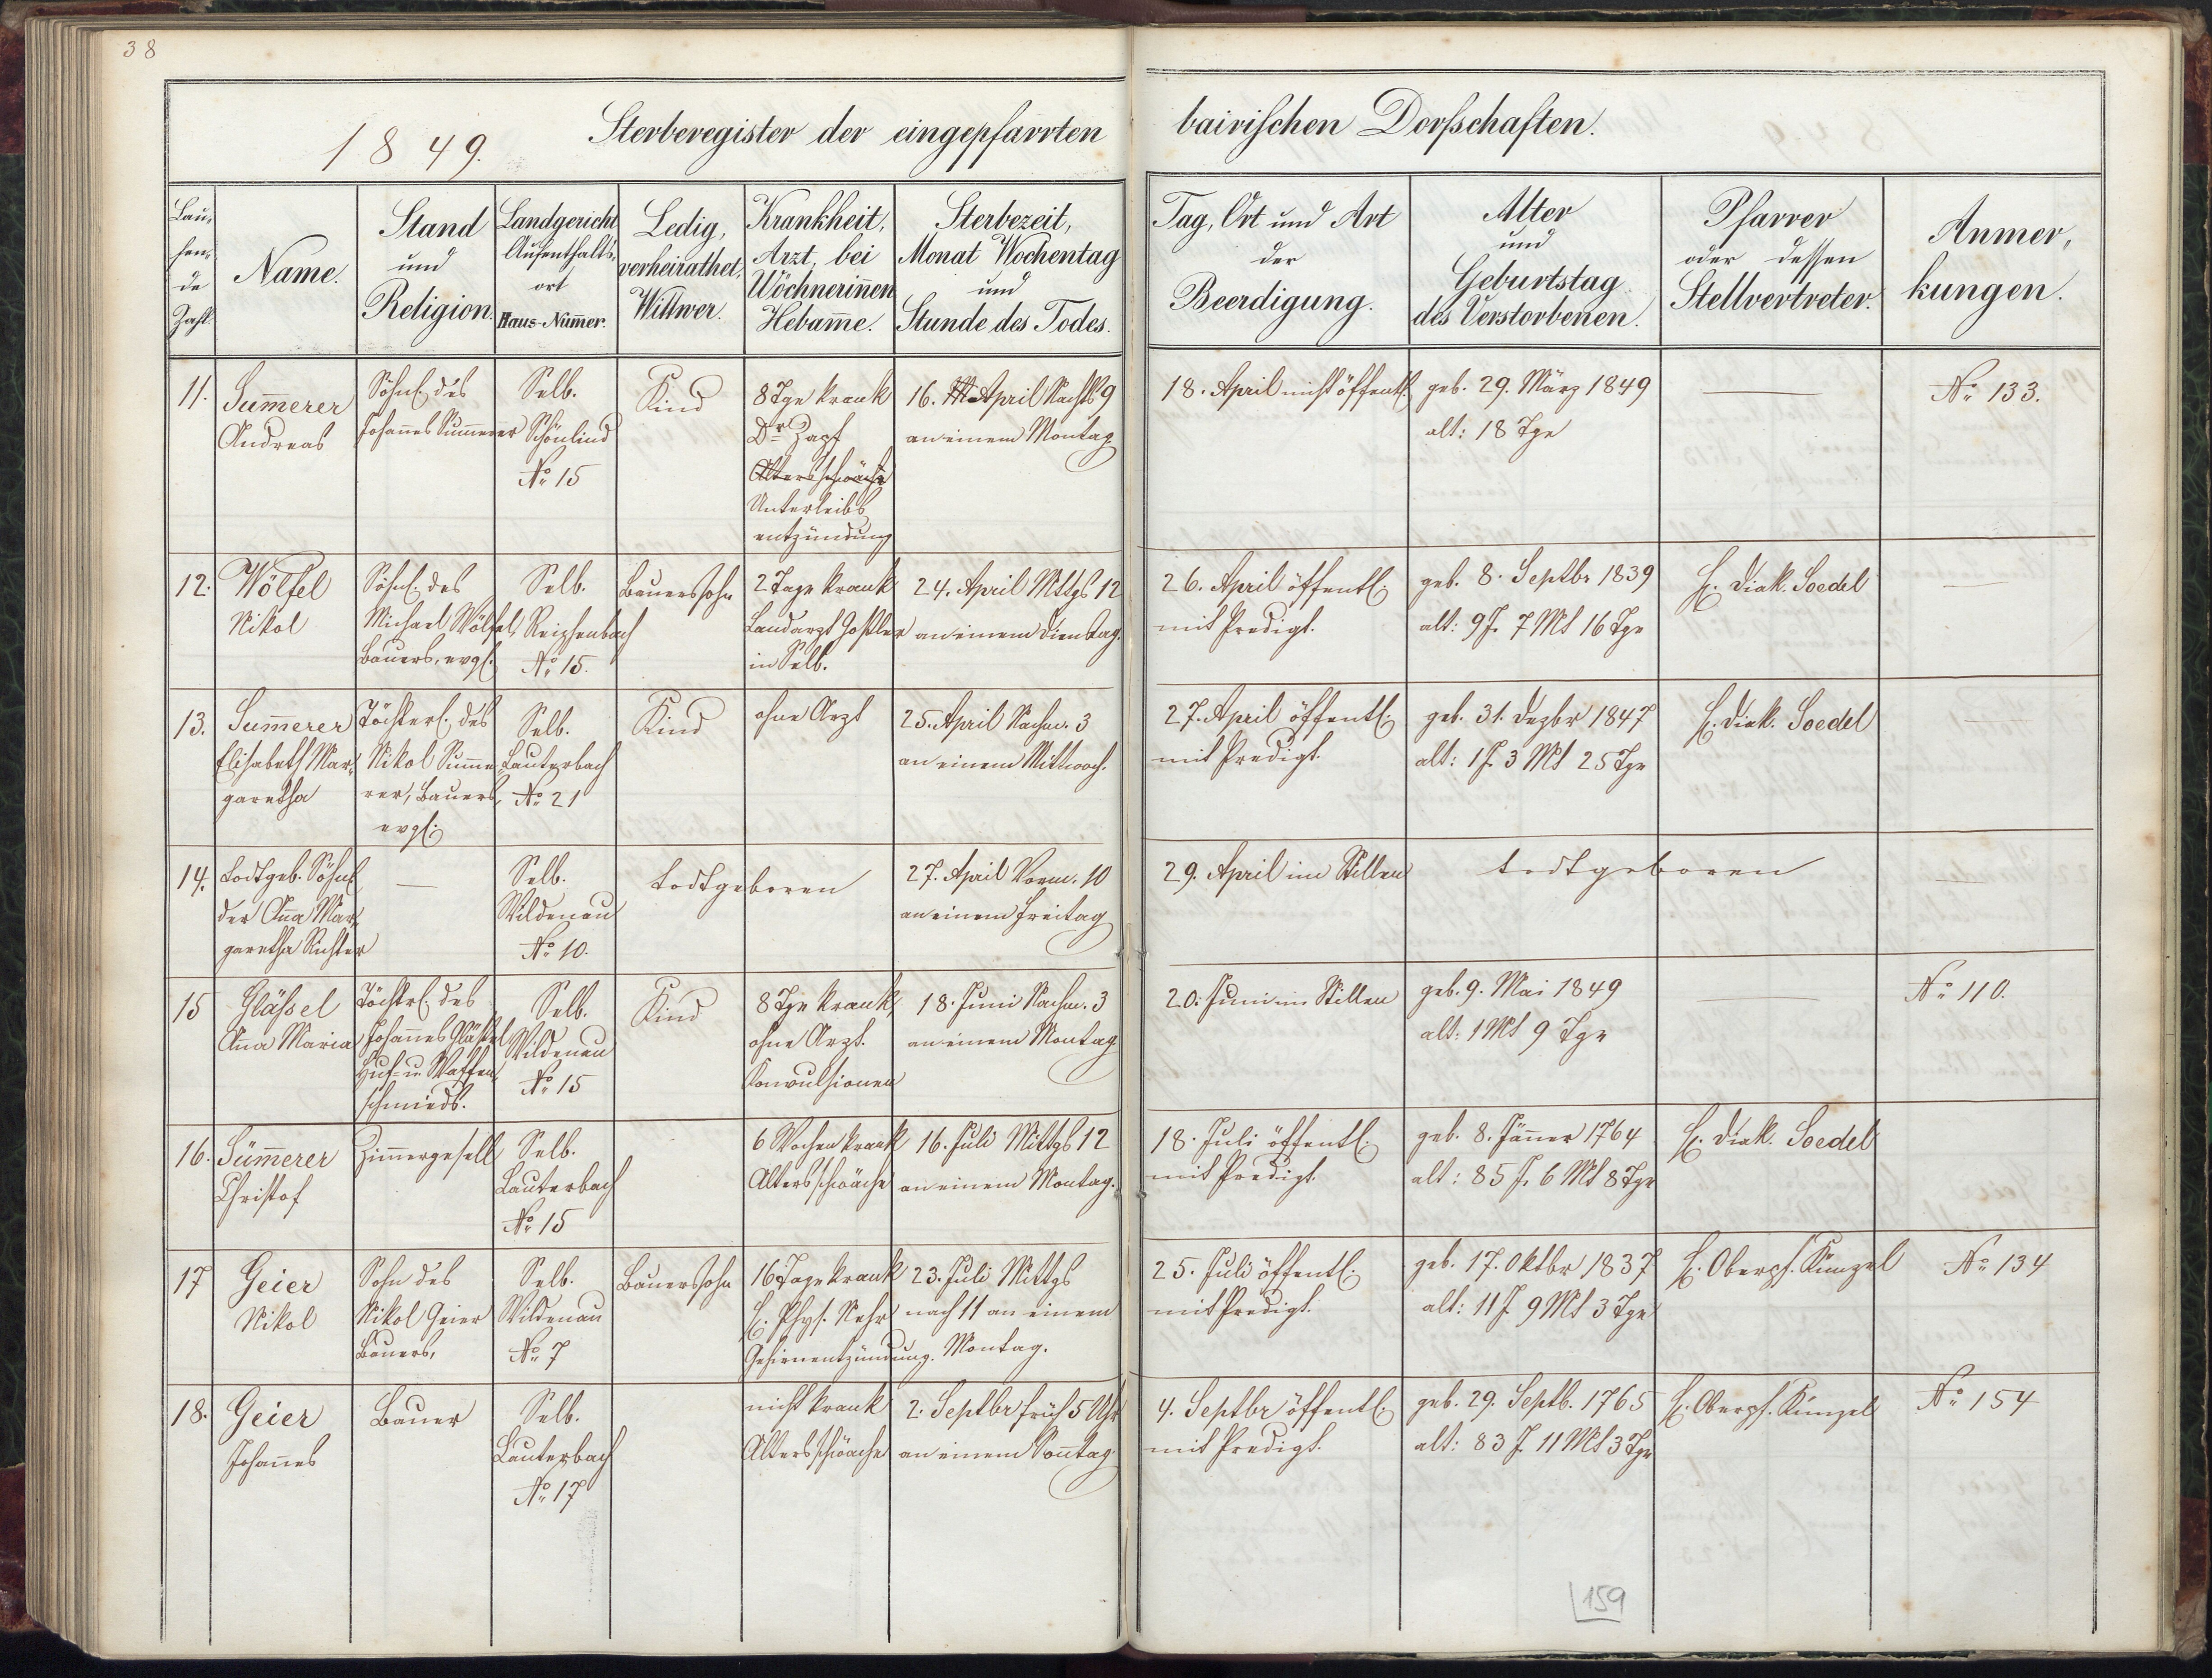 38
1849. Sterberegister der eingepfarrten bairischen Dorfschaften.
Lau,
fen,
de
Zahl.
Name.
Stand
und
Religion.
Landgericht
Aufenthalts,
ort
Haus-Num̄er.
Ledig,
verheirathet,
Wittwer.
Krankheit,
Arzt, bei
Wöchnerin̄en
Hebam̄e.
Sterbezeit,
Monat Wochentag
und
Stunde des Todes.
Tag, Ort und Art
der
Beerdigung.
Alter
und
Geburtstag
des Verstorbenen.
Pfarrer
oder dessen
Stellvertreter.
Anmer,
kungen.
11.
Sum̄erer
Andreas
Söhnl. des
Johan̄es Sum̄erer
Selb.
Schönlind
No. 15
Kind
8 Tge krank
Dr Zapf
Altersschwäche
Unterleibs
entzündung
16. April Nachts 9
an einem Montag
18. April nicht öffentl.
geb. 29. März 1849
alt: 18 Tge
—
No. 133.
12.
Wölfel
Nikol
Söhnl. des
Michael Wölfel,
Bauers, evgl.
Selb.
Reichenbach
No. 15.
Bauerssohn
2 Tage krank
Landarzt
in Selb.
24. April Mttgs 12
an einem Dienstag.
26. April öffentl.
mit Predigt.
geb. 8. Septbr 1839
alt: 9 J. 7 Mt 16 Tge
H. Diak. Soedel
—
13.
Sum̄erer
Elisabeth Mar,
garetha
Töchterl. des
Nikol Sum̄e,
rer, Bauers,
evgl.
Selb.
Lauterbach
No. 21
Kind
ohne Arzt
25. April Nachm. 3
an einem Mittwoch.
27. April öffentl.
mit Predigt.
geb. 31. Dezbr 1847
alt: 1 J. 3 Mt 25 Tge
H. Diak. Soedel
—
14.
Todtgeb. Söhnl.
der An̄a Mar,
garetha Richter
—
Selb.
Wildenau
No. 10.
todtgeboren
27. April Vorm. 10
an einem Freitag
29. April im Stillen
todtgeboren
—
15
Gläßel
An̄a Maria
Töchtrl. des
Johan̄es Gläßel
Huf- u. Waffen,
schmieds.
Selb.
Wildenau
No. 15
Kind
8 Tge krank,
ohne Arzt.
Konvulsionen
18. Juni Nachm. 3
an einem Montag
20. Juni im Stillen
geb. 9. Mai 1849
alt: 1 Mt 9 Tge
—
No. 110.
16.
Süm̄erer
Christof
Zim̄ergesell
Selb.
Lauterbach
No. 15
6 Wochen krank
Altersschwäche
16. Juli Mittgs 12
an einem Montag.
18. Juli öffentl.
mit Predigt.
geb. 8. Jän̄er 1764
alt: 85 J. 6 Mt 8 Tge
H. Diak. Soedel
17
Geier
Nikol
Sohn des
Nikol Geier
Bauers,
Selb.
Wildenau
No. 7
Bauerssohn
16 Tage krank
H. Phys.
Gehirnentzündung.
23. Juli Mittgs
nach 11 an einem
Montag.
25. Juli öffentl.
mit Predigt.
geb. 17. Oktbr 1837
alt: 11 J. 9 Mt 3 Tge
H. Oberpf. Künzel
No. 134
18.
Geier
Johan̄es
Bauer
Selb.
Lauterbach
No. 17
nicht krank
Altersschwäche
2. Septbr früh 5 Uhr
an einem Son̄tag
4. Septbr öffentl.
mit Predigt.
geb. 29. Septb. 1765
alt: 83 J. 11 Mt 3 Tge
H. Oberpf. Künzel
No. 154
159